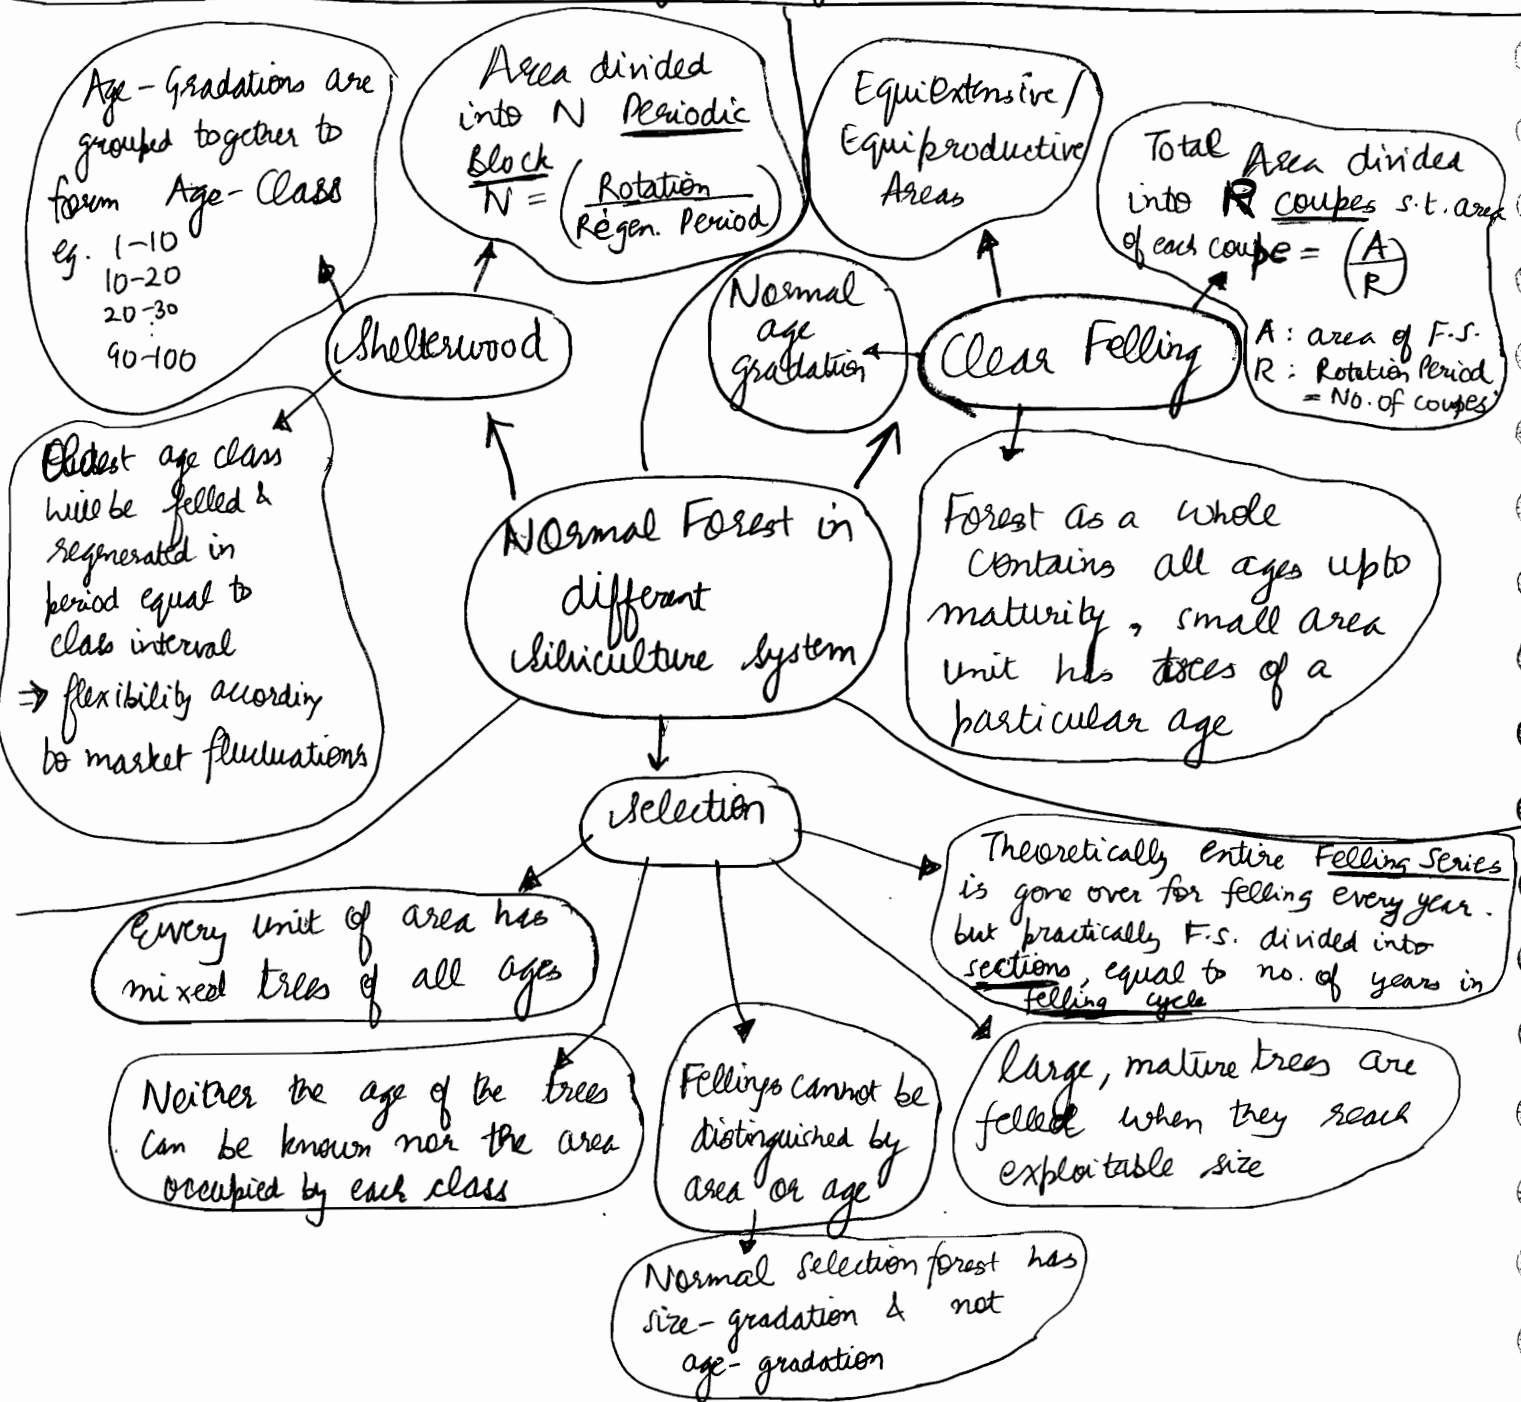 Age-Gradations are
grouped together to
form Age-Class
eg. 1-10
10-20
20-30
:
90-100
Area divided
into N Periodic
Block
N = (Rotation / Regen. Period)
EquiExtensive/
Equiproductive
Areas
Total Area divided
into R coupes s.t. area
of each coupe = (A/R)
A : area of F.S.
R : Rotation Period
= No. of coupes
Normal
age
gradation
Shelterwood
Clear Felling
Oldest age class
will be felled &
regenerated in
period equal to
class interval
⇒ flexibility according
to market fluctuations
Normal Forest in
different
Silviculture System
Forest as a whole
contains all ages upto
maturity, small area
unit has trees of a
particular age
Selection
Every unit of area has
mixed trees of all ages
Theoretically entire Felling Series
is gone over for felling every year.
but practically F.S. divided into
sections, equal to no. of years in
felling cycle
Neither the age of the trees
can be known nor the area
occupied by each class
Fellings cannot be
distinguished by
area or age
large, mature trees are
felled when they reach
exploitable size
Normal Selection forest has
size-gradation & not
age-gradation